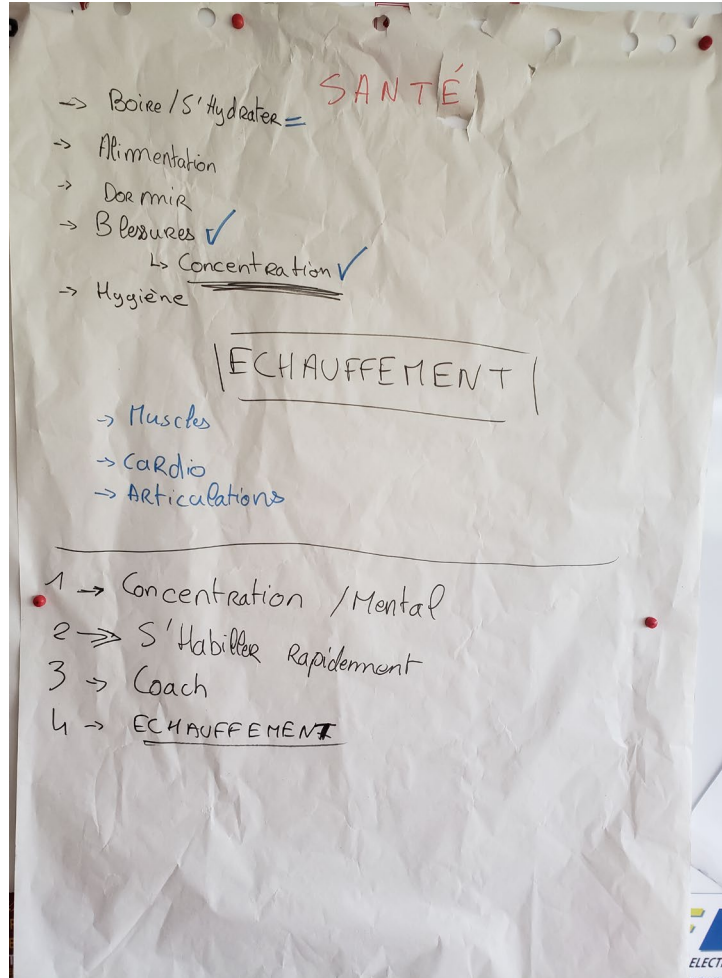 SANTÉ
→ Boire / S'Hydrater =
→ Alimentation
→ Dormir
→ Blessures ✓
↳ Concentration ✓
→ Hygiène
ECHAUFFEMENT
→ Muscles
→ Cardio
→ Articulations
1 → Concentration / Mental
2 → S'Habiller Rapidemment
3 → Coach
4 → ECHAUFFEMENT
ELECT